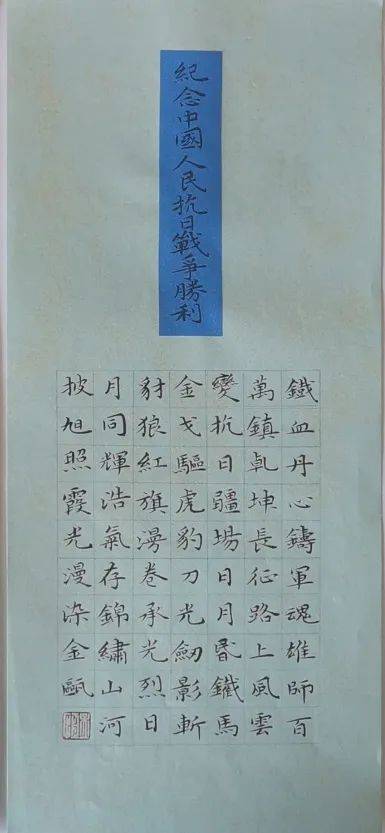 紀念中國人民抗日戰爭勝利
鐵血丹心鑄軍魂雄師百
萬鎮乹坤長征路上風雲
變抗日疆場日月昏鐵馬
金戈驅虎豹刀光劒影斬
豺狼紅旗漫卷承光烈日
月同輝浩氣存錦繡山河
披旭照霞光漫染金甌